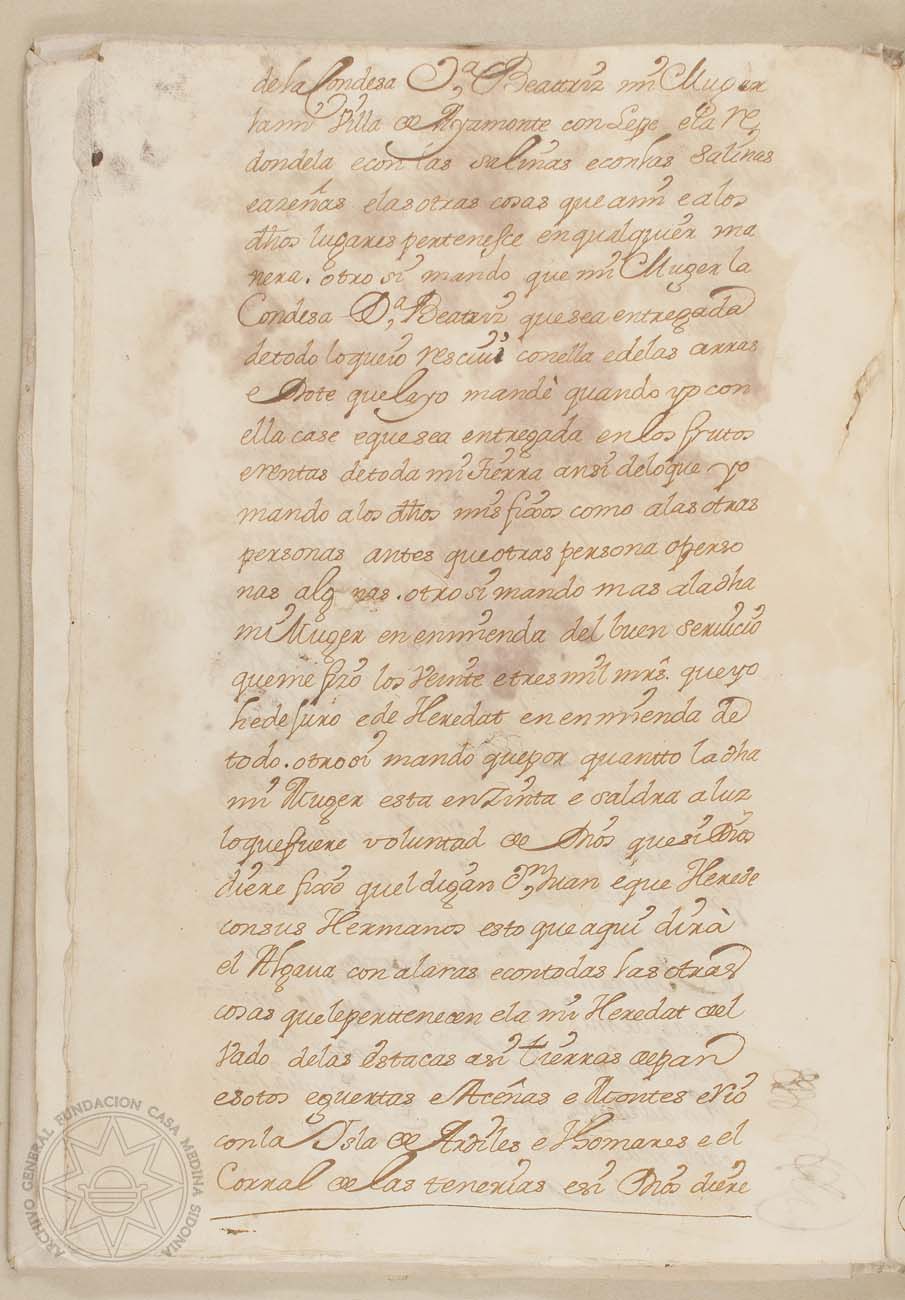 dela Condesa D.ª Beattriz mi Muger
la mi Villa de Ayamonte con Lepe e la Re
dondela e con las salinas e con las salinas
e azeñas e las otras cosas que a mi e a los
dhos lugares pertenesce en qualquier ma
nera. otro si mando que mi Muger la
Condesa D.ª Beatriz que sea entregada
de todo lo que io resciui con ella e de las arras
e Dote que la yo mandè quando yo con
ella case e que sea entregada en los frutos
e rentas de toda mi Tierra ansi de lo que yo
mando a los dhos mis fixos como a las otras
personas antes que otras persona o perso
nas algunas. otro si mando mas a la dha
mi Muger en enmienda del buen seruicio
que me fizo los Veinte e tres mil mrs. que yo
he de juro e de Heredat en enmienda de
todo. otrosi mando que por quantto la dha
mi Muger esta en Zinta e saldra a luz
lo que fuere voluntad de Dios que si Dios
diere fixo quel digan Dn Juan e que Herede
con sus Hermanos esto que aqui dirà
el Algaua con alaras e con todas las otras
cosas que le perttenecen e la mi Heredat del
Vado de las estacas asi tierras de pan
e sotos e guertas e Aceñas e Montes e rio
con la Isla de Ardiles e Thomares e el
Corral de las tenerias e si Dios diere
ARCHIVO GENERAL FUNDACION CASA MEDINA SIDONIA